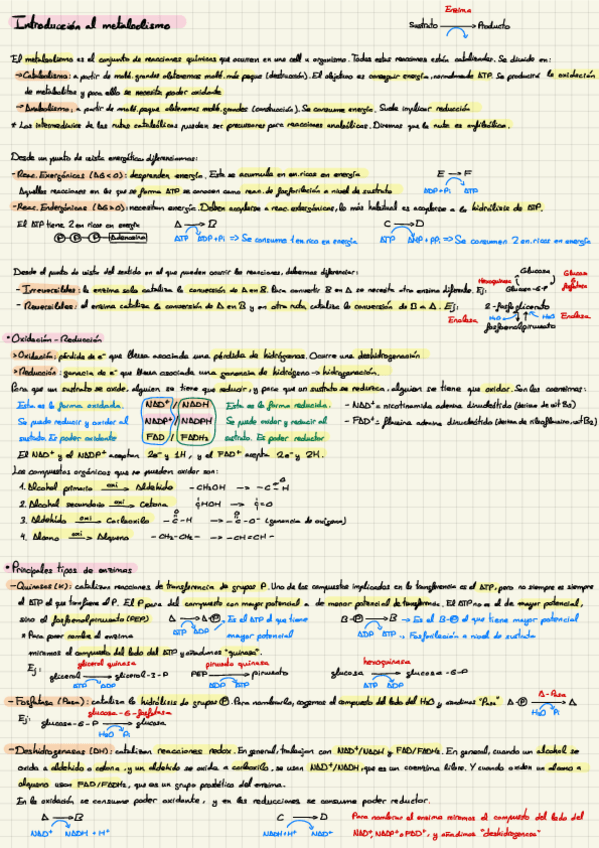 Introducción al metabolismo
Enzima
Sustrato → Producto
El metabolismo es el conjunto de reacciones químicas que ocurren en una cell u organismo. Todas estas reacciones están catalizadas. Se divide en:
→ Catabolismo: a partir de moléc. grandes obtenemos moléc. más peque (destrucción). El objetivo es conseguir energía, normalmente ATP. Se producirá la oxidación
de metabolitos y para ello se necesita poder oxidante
→ Anabolismo: a partir de moléc. peque obtenemos moléc. grandes (construcción). Se consume energía. Suele implicar reducción
* Los intermedios de las rutas catabólicas pueden ser precursores para reacciones anabólicas. Diremos que la ruta es anfibólica.
Desde un punto de vista energético diferenciamos:
- Reac. Exergónicas (ΔG < 0): desprenden energía. Esta se acumula en en. ricos en energía
E → F
Aquellas reacciones en las que se forma ATP se conocen como reac. de fosforilación a nivel de sustrato
ADP+Pi ATP
- Reac. Endergónicas (ΔG > 0): necesitan energía. Deben acoplarse a reac. exergónicas, lo más habitual es acoplarse a la hidrólisis de ATP.
El ATP tiene 2 en ricos en energía
A → B
C → D
P P P Adenosina
ATP ADP+Pi ⇒ Se consume 1 en rico en energía
ATP AMP+PPi ⇒ Se consumen 2 en. ricos en energía
Desde el punto de vista del sentido en el que pueden ocurrir las reacciones, debemos diferenciar:
- Irreversibles: la enzima solo cataliza la conversión de A en B. Para convertir B en A se necesita otra enzima diferente. Ej:
Hexoquinasa
Glucosa
Glucosa-6-P
Glucosa fosfatasa
- Reversibles: el enzima cataliza la conversión de A en B y en otra ruta cataliza la conversión de B a A. Ej:
2-fosfoglicerato
Enolasa H₂O H₂O Enolasa
fosfoenolpiruvato
• Oxidación-Reducción
> Oxidación: pérdida de e⁻ que lleva asociada una pérdida de hidrógenos. Ocurre una deshidrogenación
> Reducción: ganancia de e⁻ que lleva asociada una ganancia de hidrógeno → hidrogenación.
Para que un sustrato se oxide, alguien se tiene que reducir, y para que un sustrato se reduzca, alguien se tiene que oxidar. Son las coenzimas:
Esta es la forma oxidada. NAD⁺ / NADH Esta es la forma reducida. - NAD⁺ = nicotinamida adenina dinucleótido (deriva de vit B3)
Se puede reducir y oxidar al NADP⁺ / NADPH Se puede oxidar y reducir al - FAD⁺ = flavina adenina dinucleótido (deriva de riboflavina, vit B2)
sustrato. Es poder oxidante FAD / FADH₂ sustrato. Es poder reductor
El NAD⁺ y el NADP⁺ aceptan 2e⁻ y 1H, y el FAD⁺ acepta 2e⁻ y 2H.
Los compuestos orgánicos que se pueden oxidar son:
1. Alcohol primario oxi → Aldehído -CH₂OH → -C=O H
2. Alcohol secundario oxi → Cetona CHOH → C=O
3. Aldehído oxi → Carboxilo -C-H O → -C-O⁻ O (ganancia de oxígeno)
4. Alcano oxi → Alqueno -CH₂-CH₂- → -CH=CH-
• Principales tipos de enzimas
- Quinasas (K): catalizan reacciones de transferencia de grupos P. Uno de los compuestos implicados en la transferencia es el ATP, pero no siempre es siempre
el ATP el que transfiere el P. El P pasa del compuesto con mayor potencial a de menor potencial de transferencia. El ATP no es el de mayor potencial,
sino el fosfoenolpiruvato (PEP)
A → A-P → Es el ATP el que tiene
ATP ADP mayor potencial
B-P → B → Es el B-P el que tiene mayor potencial
ADP ATP → Fosforilación a nivel de sustrato
* Para poner nombre al enzima
miramos el compuesto del lado del ATP y añadimos "quinasa".
Ej: glicerol quinasa piruvato quinasa hexoquinasa
glicerol → glicerol-3-P PEP → piruvato glucosa → glucosa-6-P
ATP ADP ADP ATP ATP ADP
- Fosfatasa (Pasa): cataliza la hidrólisis de grupos P. Para nombrarlo, cogemos el compuesto del lado del H₂O y añadimos "Pasa"
A-Pasa
A-P → A
H₂O Pi
Ej: glucosa-6-fosfatasa
glucosa-6-P → glucosa
H₂O Pi
- Deshidrogenasas (DH): catalizan reacciones redox. En general, trabajan con NAD⁺/NADH y FAD/FADH₂. En general, cuando un alcohol se
oxida a aldehído o cetona, y un aldehído se oxida a carboxilo, se usan NAD⁺/NADH, que es un coenzima libre. Y cuando oxidan un alcano a
alqueno usan FAD/FADH₂, que es un grupo prostético del enzima.
En la oxidación se consume poder oxidante, y en las reducciones se consume poder reductor.
A → B
NAD⁺ NADH + H⁺
C → D
NADH+H⁺ NAD⁺
Para nombrar el enzima miramos el compuesto del lado del
NAD⁺, NADP⁺ o FAD⁺, y añadimos "deshidrogenasa"